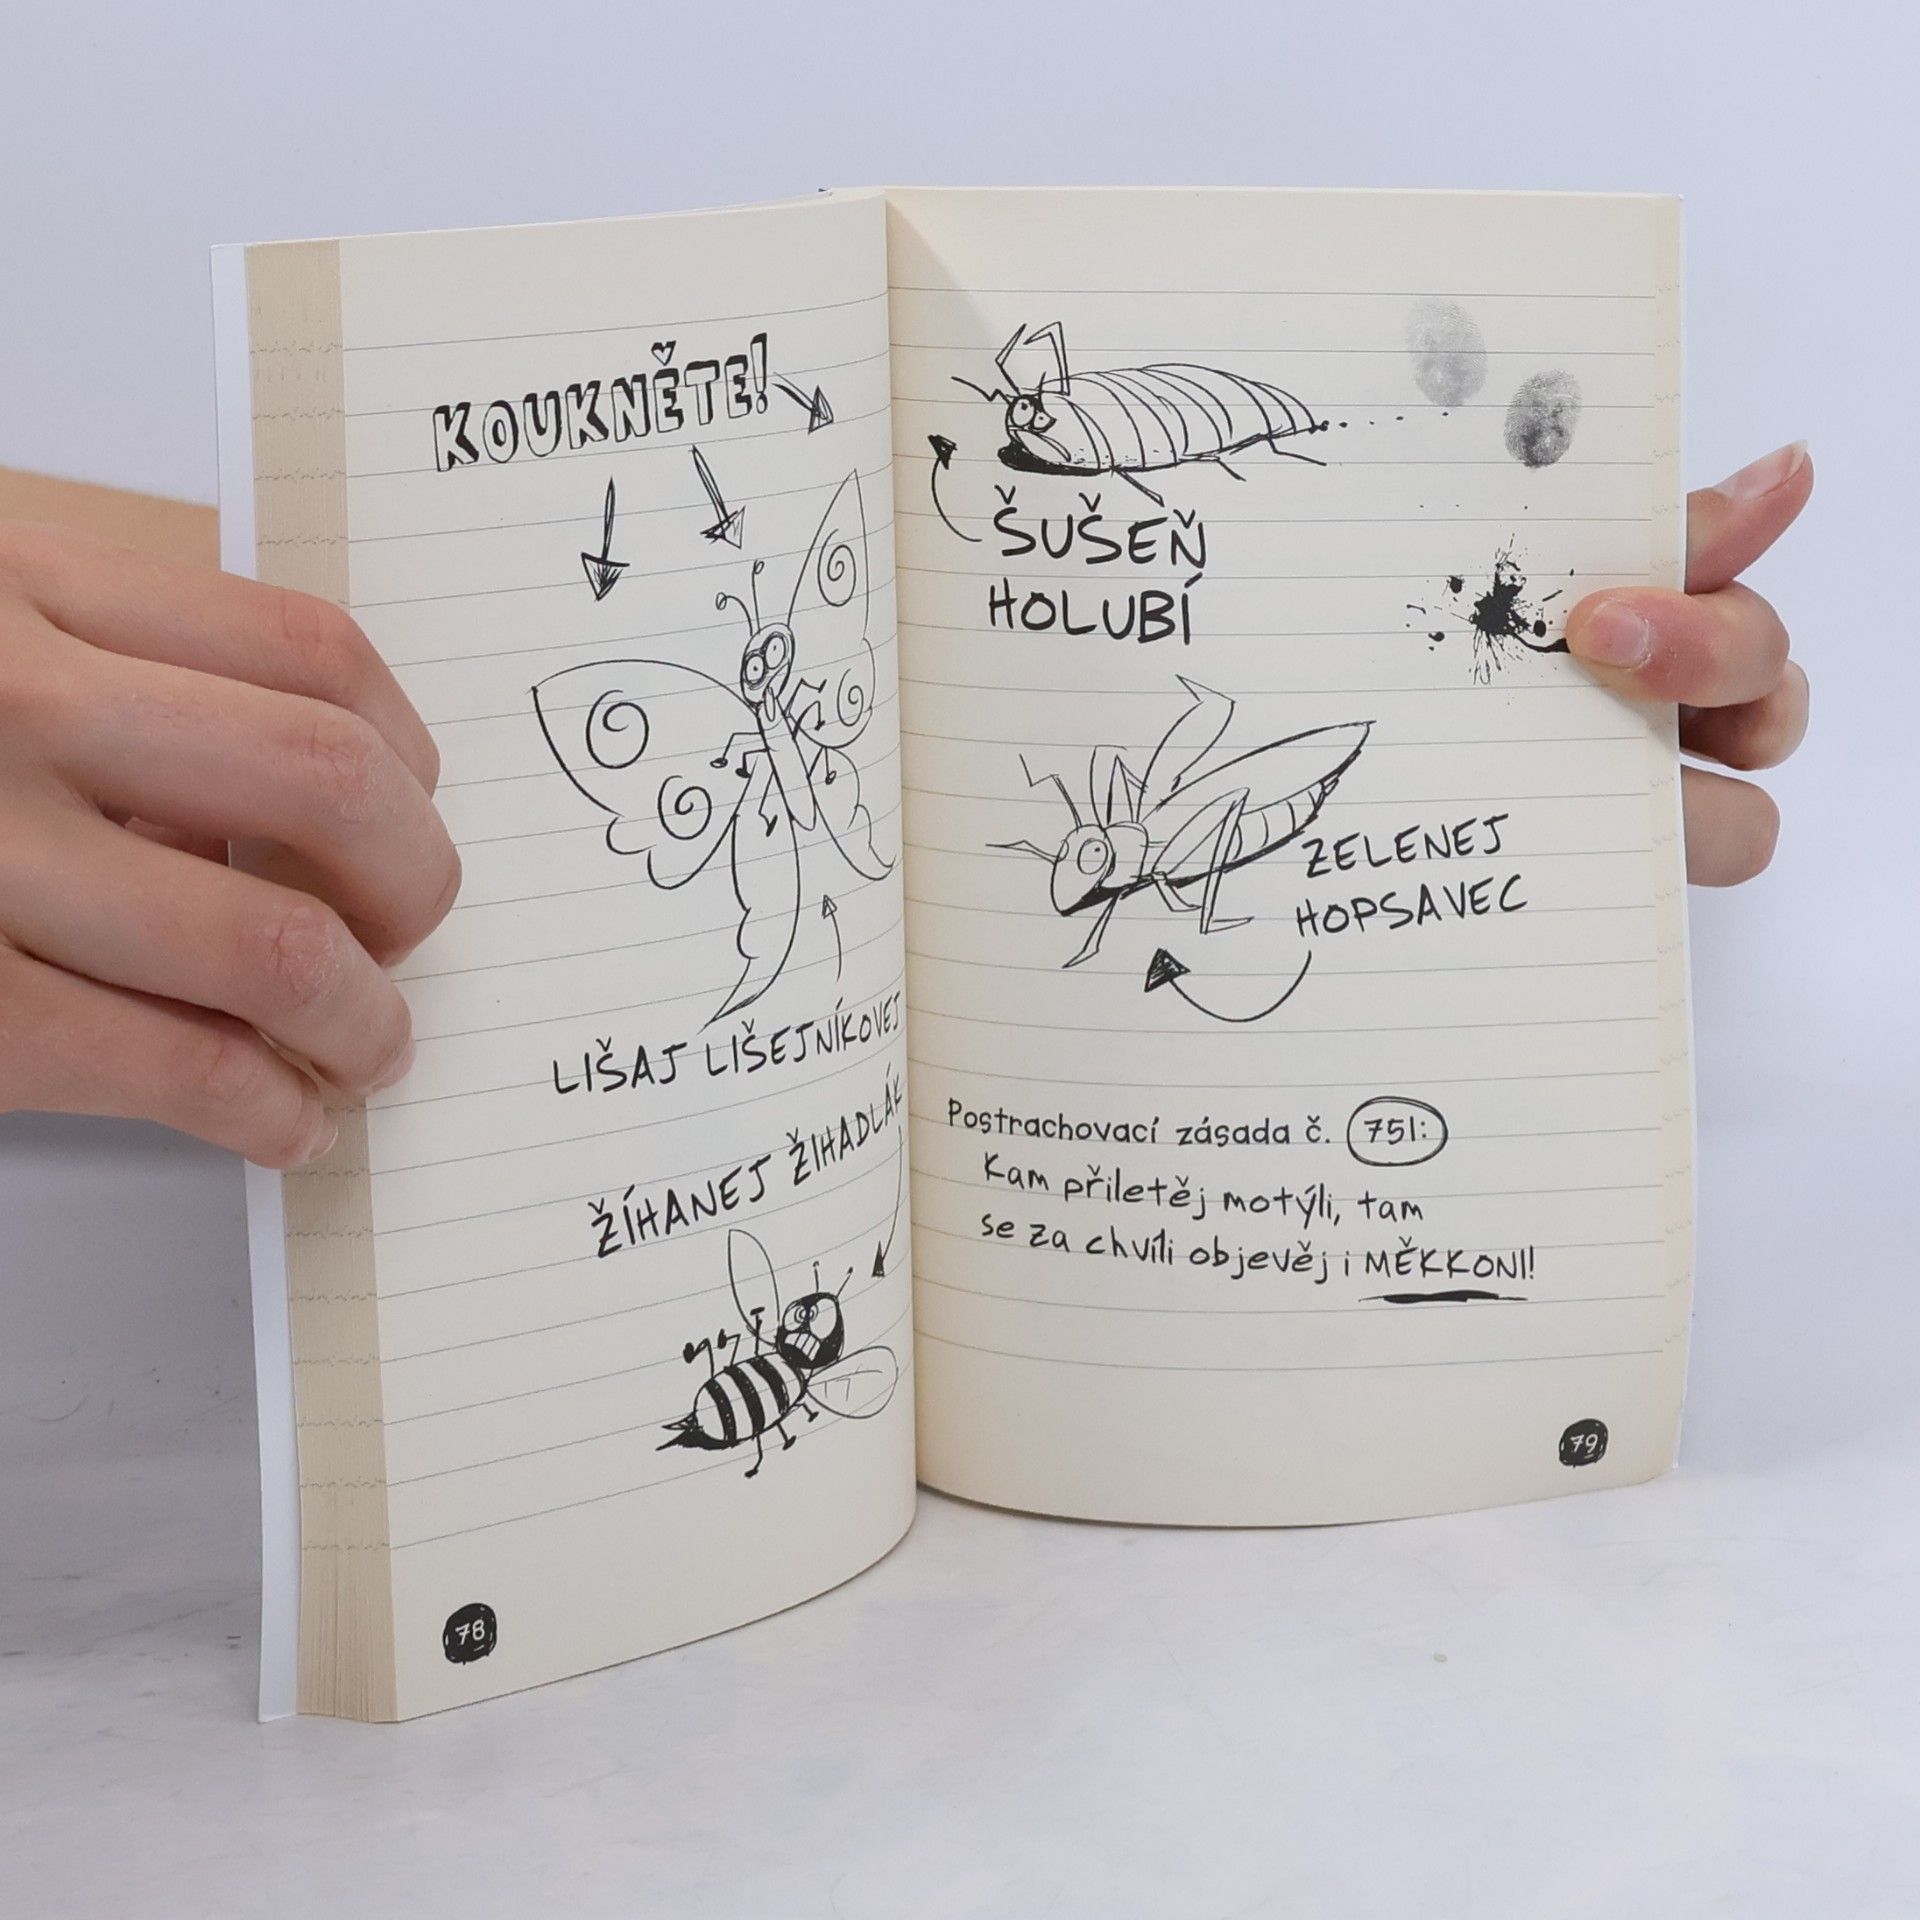 KOUKNĚTE!
LIŠAJ LIŠEJNÍKOVEJ
ŽÍHANEJ ŽIHADLÁK
78
ŠUŠEŇ
HOLUBÍ
ZELENEJ
HOPSAVEC
Postrachovací zásada č. 751:
Kam přiletěj motýli, tam
se za chvíli objevěj i MĚKKONI!
79